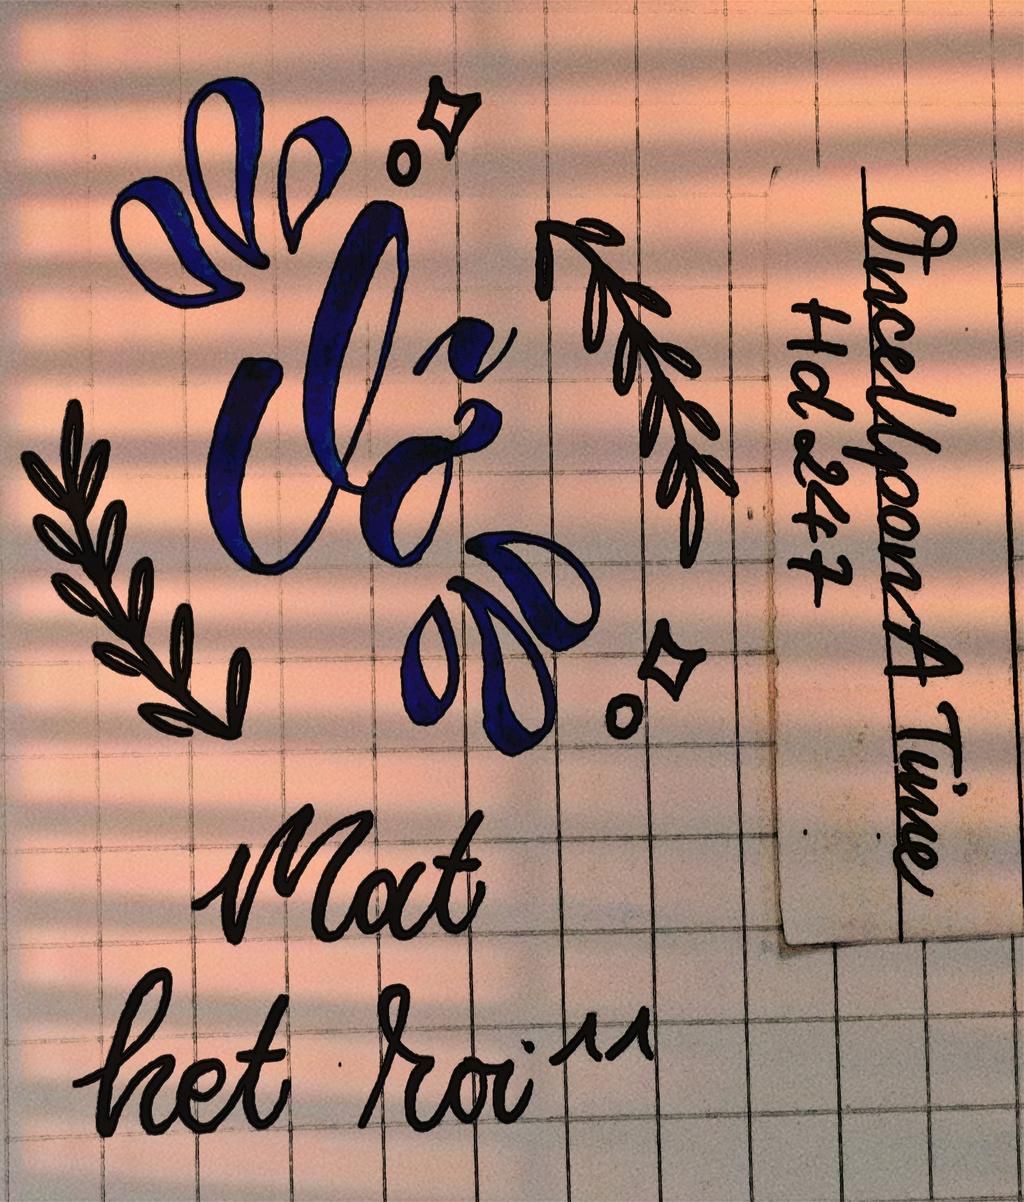 Mat
het roi
OnceUponA Time
Hd247